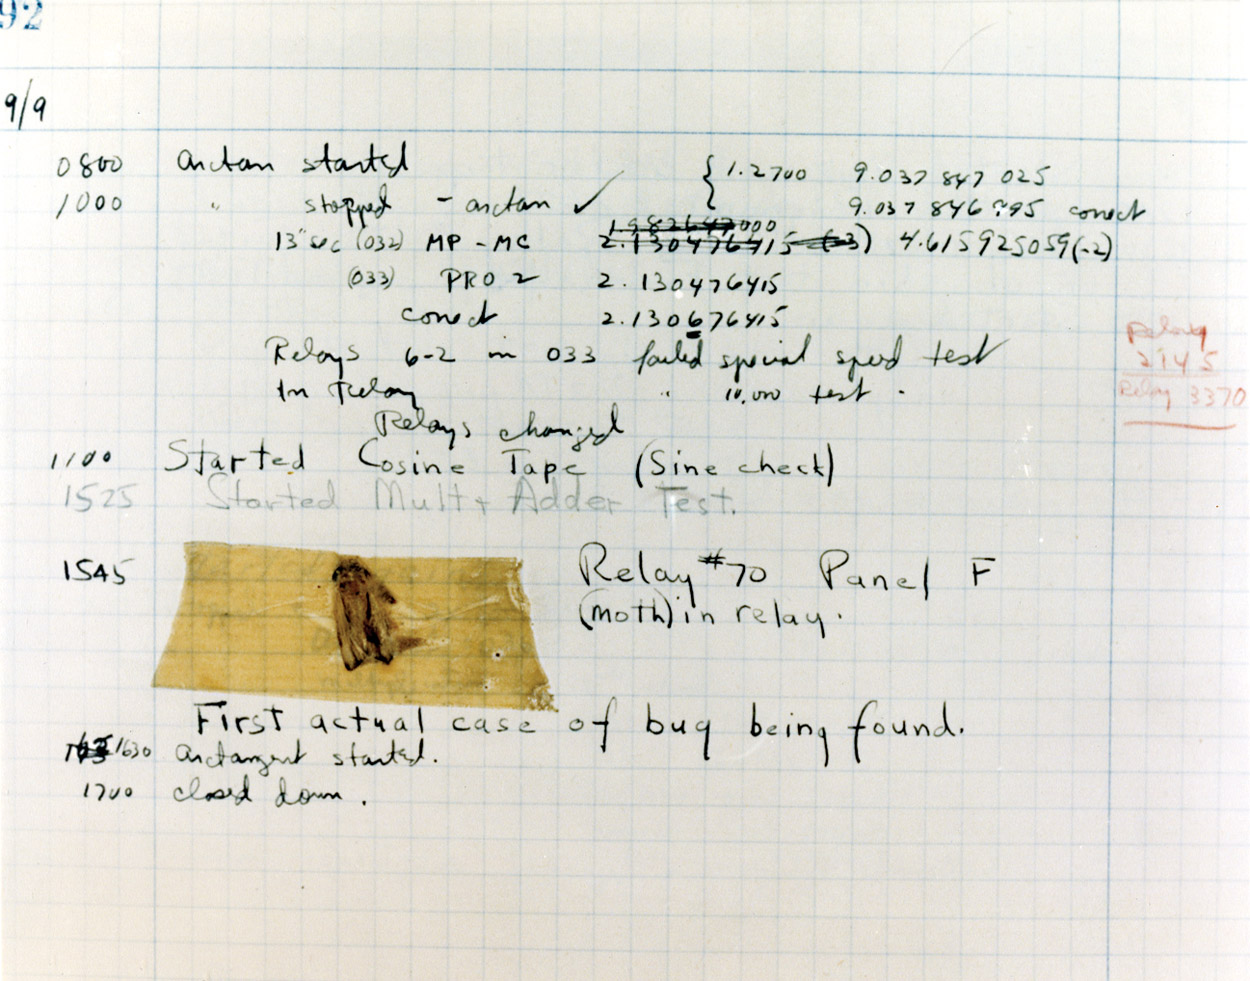 92
9/9
0800 arctan started { 1.2700 9.037 847 025
1000 " stopped - arctan ✓ 9.037 846 995 correct
13" sec (032) MP - MC 2.130476415 (-3) 4.615925059(-2)
(033) PRO 2 2.130476415
correct 2.130676415
Relays 6-2 in 033 failed special speed test
In Relay " 10,000 test .
Relay
Relay 3370
Relays changed
1100 Started Cosine Tape (Sine check)
1525 Started Mult + Adder Test.
1545 Relay #70 Panel F
(moth) in relay.
First actual case of bug being found.
1630 arctangent started.
1700 closed down .